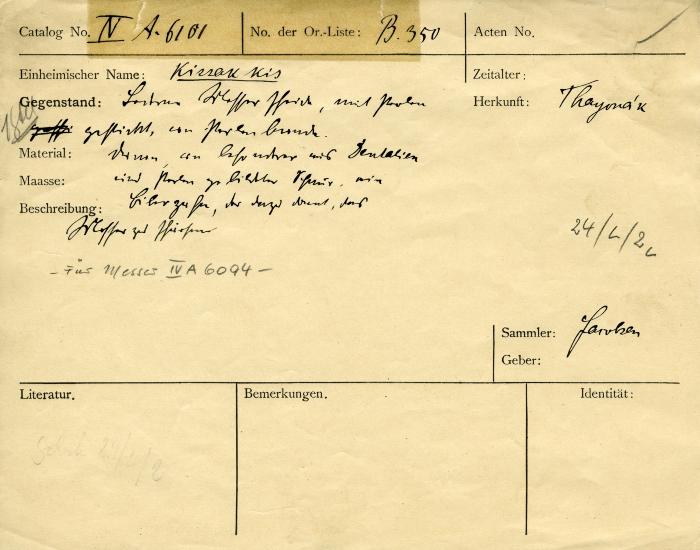 Catalog No. IV A. 6101
No. der Or.-Liste: B. 350
Acten No.
Einheimischer Name: Kizzakkis
Zeitalter:
Gegenstand: Lederne Messer Scheide, mit Perlen
gestickt, an Perlenbande.
Herkunft: Thayonák
Material: daran, an besonderer aus Dentalien
Maasse: und Perlen gebildeter Schnur, ein
Beschreibung: Biberzahn, der dazu dient, das
Messer zu schärfen
24/L/2
- Für Messer IV A 6094 -
Sammler: Jacobsen
Geber:
Literatur.
Bemerkungen.
Identität: